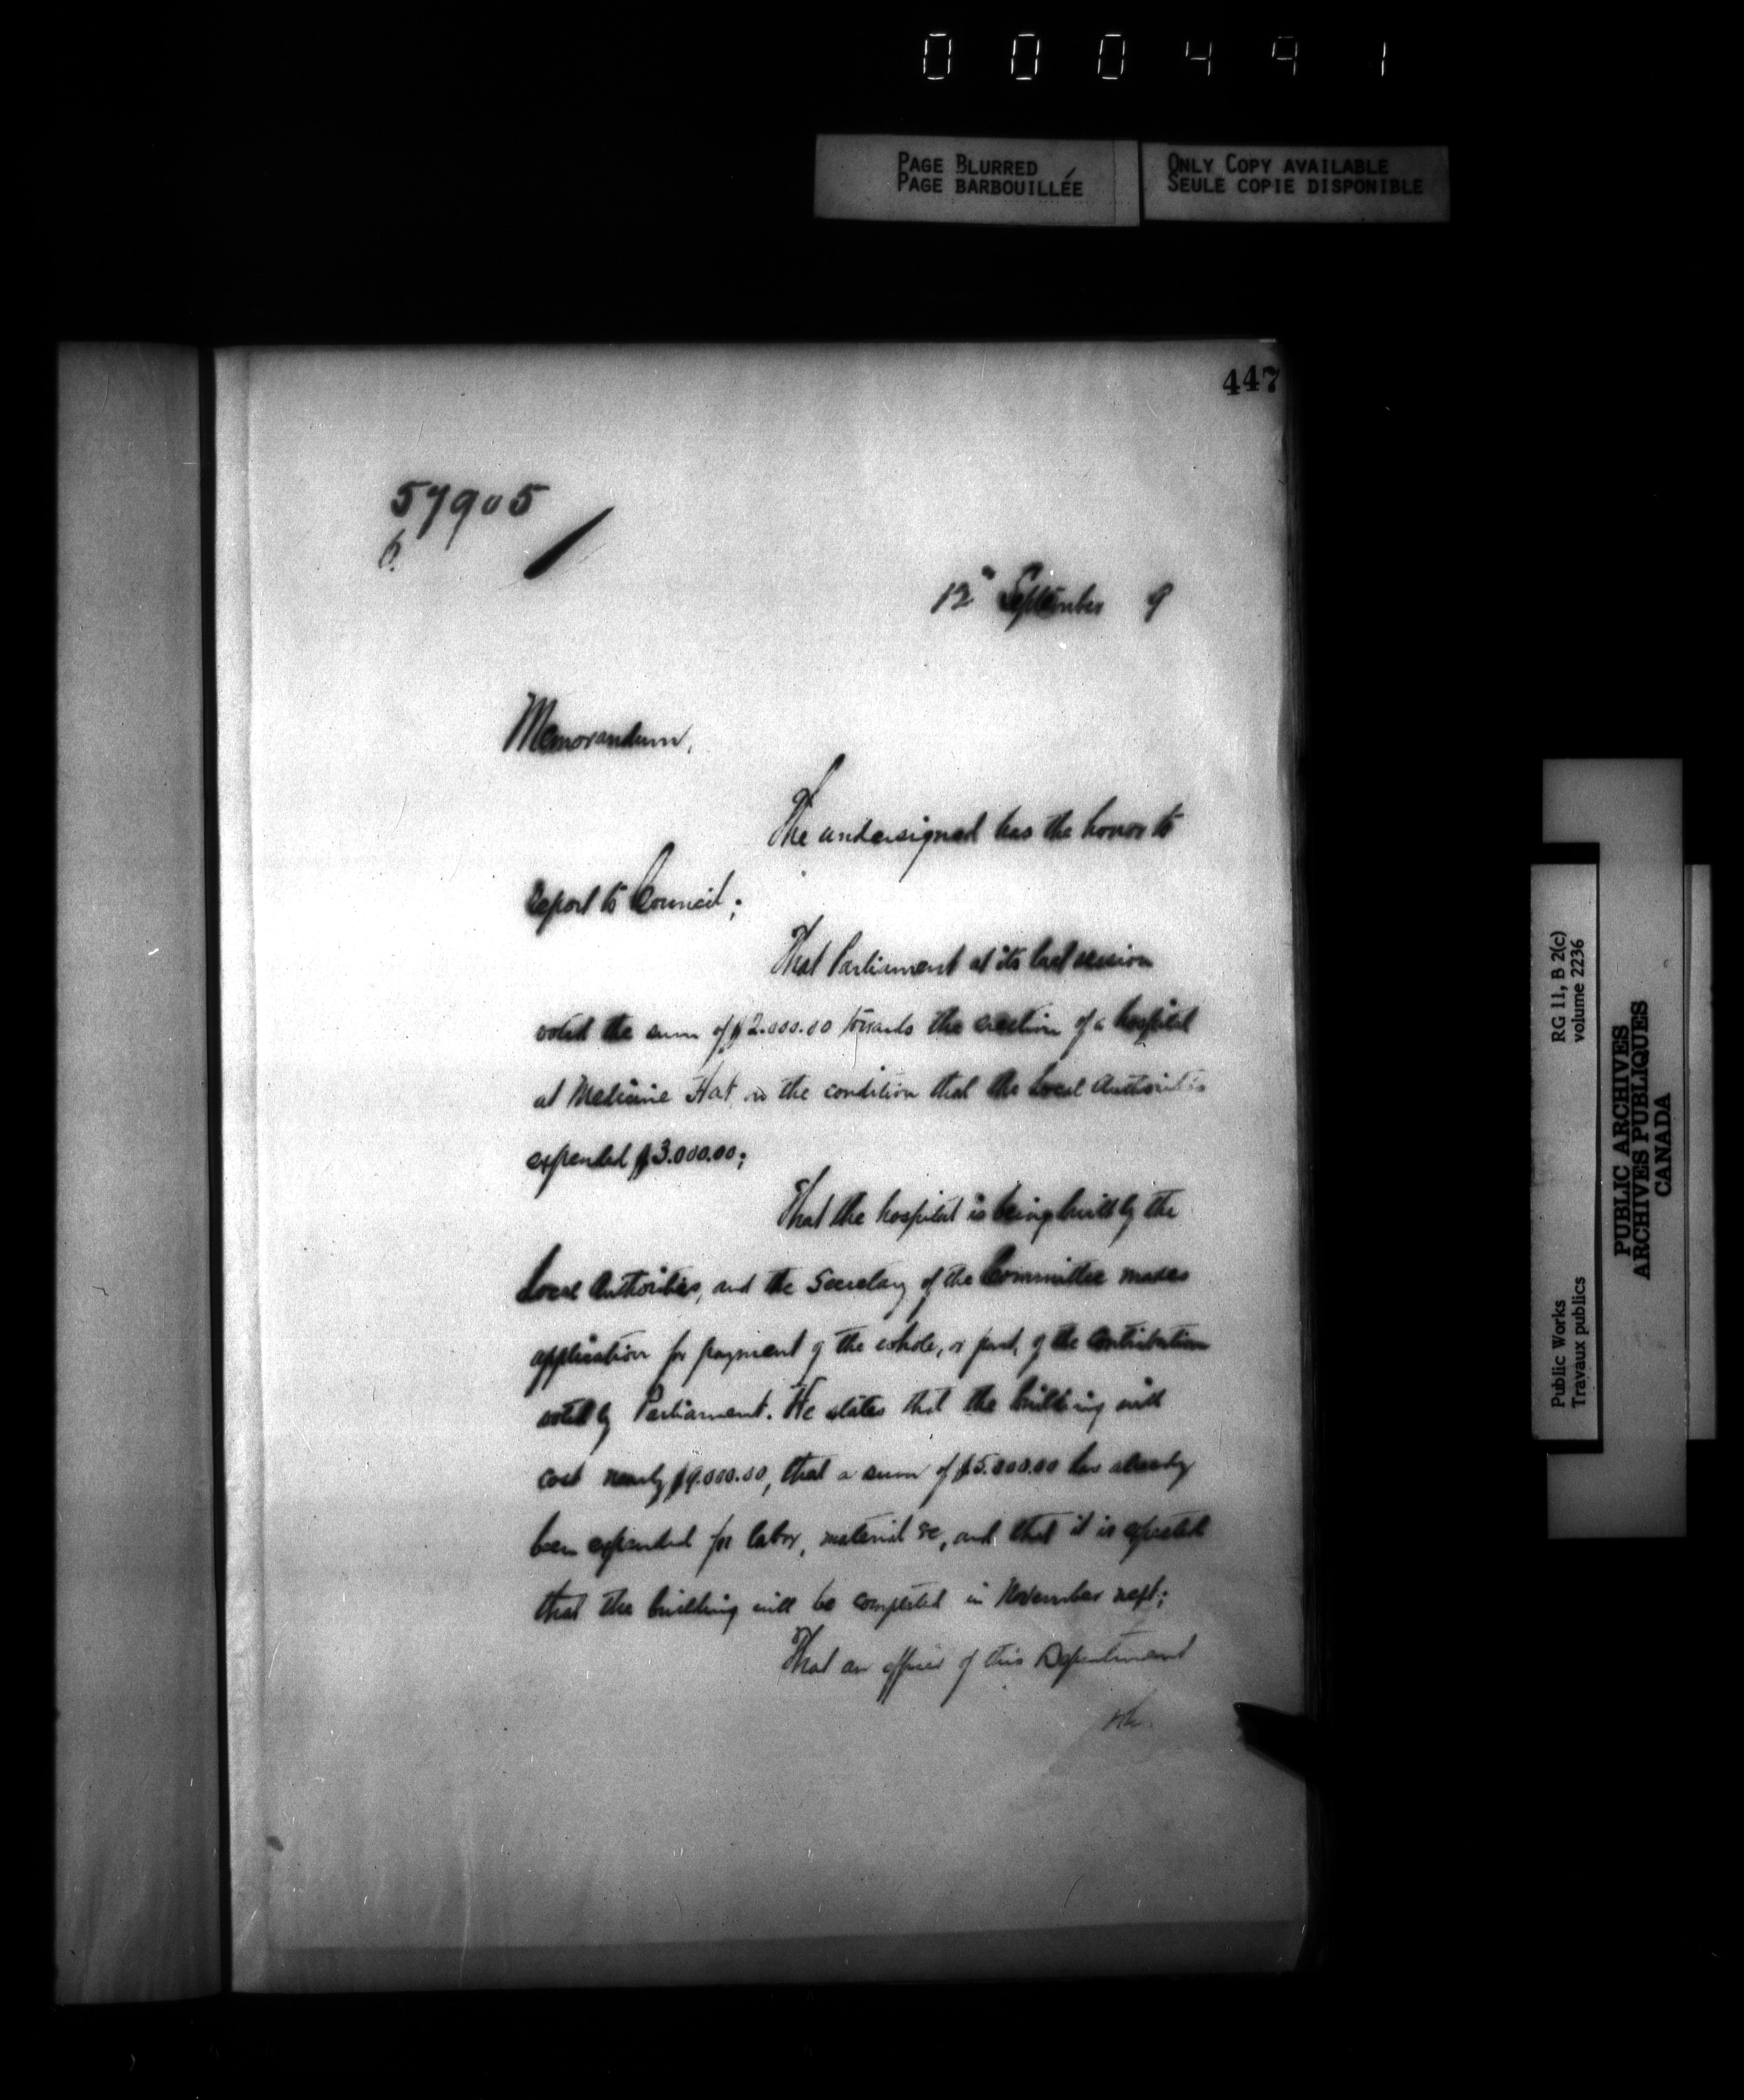 0 0 0 4 9 1
PAGE BLURRED
PAGE BARBOUILLÉE
ONLY COPY AVAILABLE
SEULE COPIE DISPONIBLE
447
57905
12" September 9
Memorandum,
The undersigned has the honor to
report to Council;
That Parliament at its last session
voted the sum of $2.000.00 towards the erection of a hospital
at Medicine Hat, on the condition that the Local Authorities
expended $3.000.00;
That the hospital is being built by the
Local Authorities, and the Secretary of the Committee makes
application for payment of the whole, or part, of the contribution
voted by Parliament. He states that the building will
cost nearly $9.000.00, that a sum of $5.000.00 has already
been expended for labor, material &c, and that it is expected
that the building will be completed in November next;
That an officer of this Department
RG 11, B 2(c)
volume 2236
Public Works
Travaux publics
PUBLIC ARCHIVES
ARCHIVES PUBLIQUES
CANADA